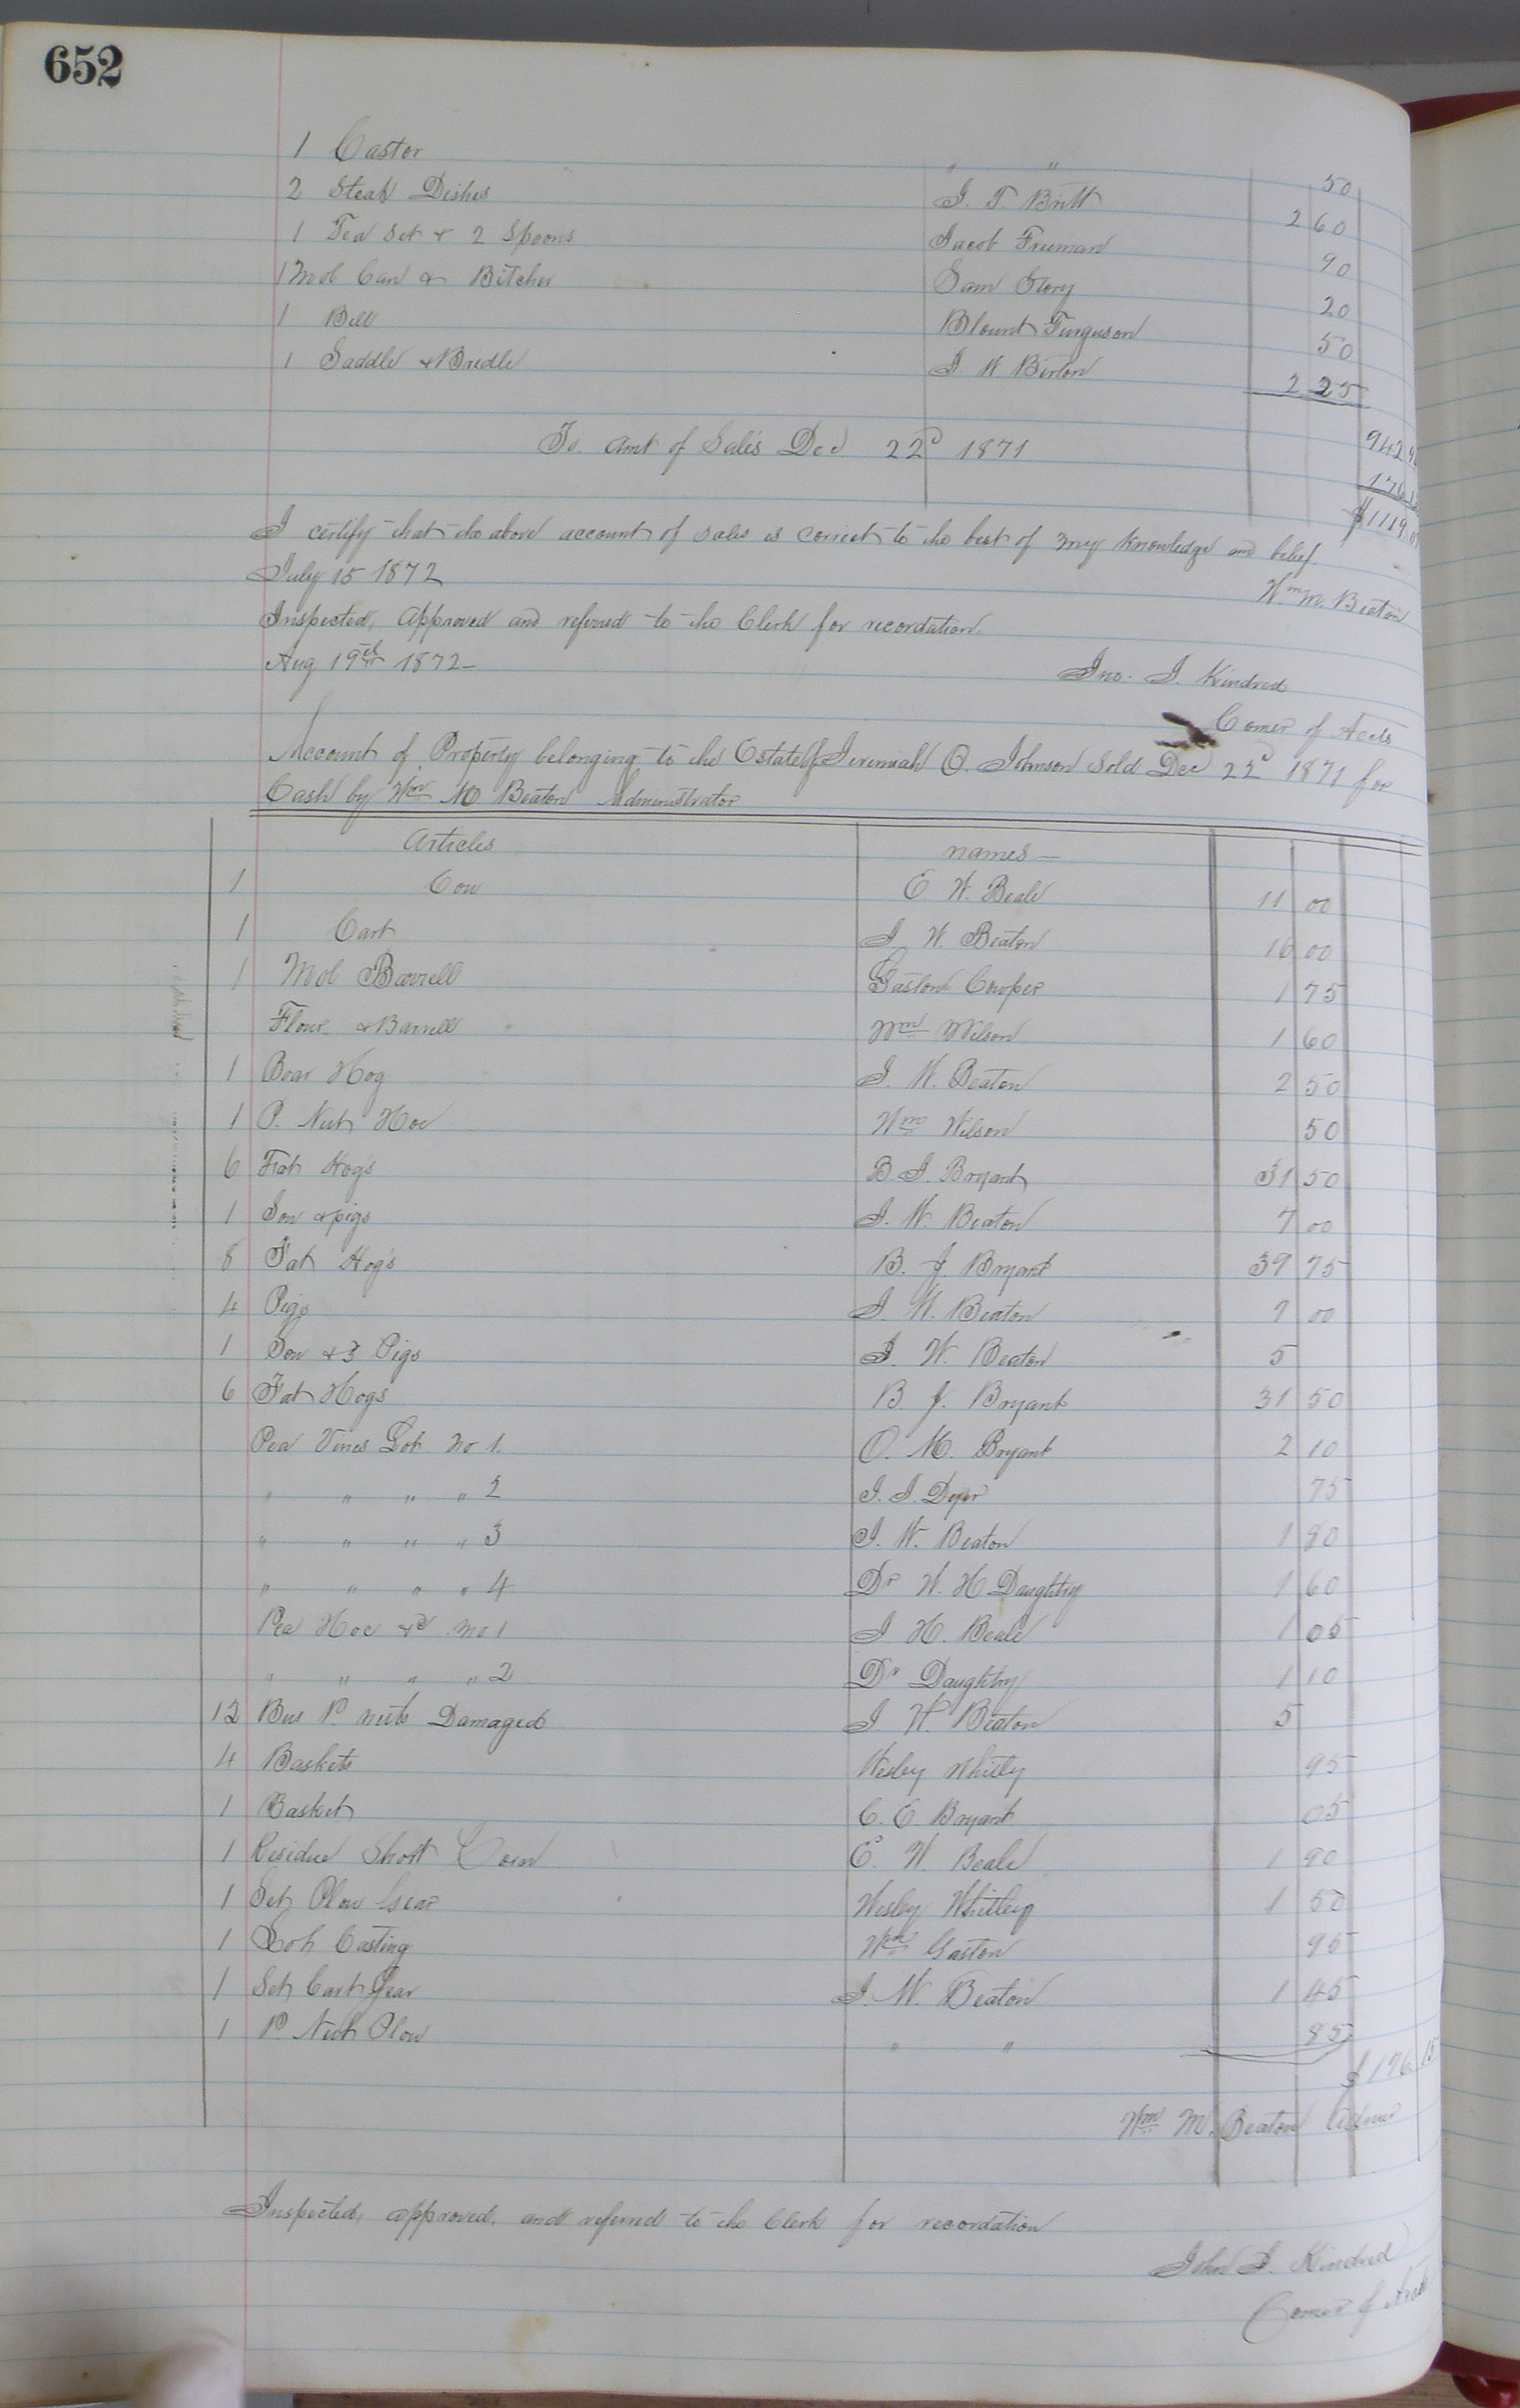 652
1 Castor " " 50
2 Steak Dishes J. T. Britt 2 60
1 Tea Set & 2 Spoons Jacob Freeman 90
1 Mol Can & Pitcher Sam Story 20
1 Bell Blount Furguson 50
1 Saddle & Bridle J K Birton 2 25
942
To. Amt of Sales Dec 22d 1871 176
$1119
I certify that the above account of sales is correct to the best of my knowledge and belief.
July 15 1872 Wm M. Beaton
Inspected, Approved and referred to the Clerk for recordation.
Aug 19th 1872 Jno. J. Kindred
Comer of Accts
Account of Property belonging to the Estate of Jeremiah O. Johnson Sold Dec 22d 1871 for
Cash by Wm M Beaton Administrator
Articles names
1 Cow E. W. Beale 11 00
1 Cart J W. Beaton 16 00
1 Mol Barrell Gaston Cowper 1 75
Flour & Barrell Wm Wilson 1 60
1 Boar Hog J. W. Beaton 2 50
1 P. Nut Hoe Wm Wilson 50
6 Fat Hogs B J. Bryant 31 50
1 Sow & pigs J. W. Beaton 7 00
8 Fat Hog's B. J. Bryant 39 75
4 Pigs J. W. Beaton 7 00
1 Sow & 3 Pigs J. W. Beaton 5
6 Fat Hogs B. J. Bryant 31 50
Pea Vines Lot No 1. O. M. Bryant 2 10
" " " " 2 J. J. Dyer 75
" " " " 3 J. W. Beaton 1 80
" " " " 4 Dr W. H Daughtry 1 60
Pea Hoe &c No 1 J H. Beale 1 05
" " " " 2 Dr Daughtry 1 10
12 Bus P. nuts Damaged J W. Beaton 5
4 Baskets Wesley Whitly 95
1 Basket C. E. Bryant 05
1 Residue Short Corn E. W. Beale 1 90
1 Set Plow Gear Wesley Whitley 1 50
1 Lot Casting Wm Gaston 95
1 Set Cart Gear J. W. Beaton 1 45
1 P Nut Plow " " 85
$176 15
Wm M. Beaton Admr
Inspected, approved, and referred to the Clerk for recordation
John J. Kindred
Comer of Accts